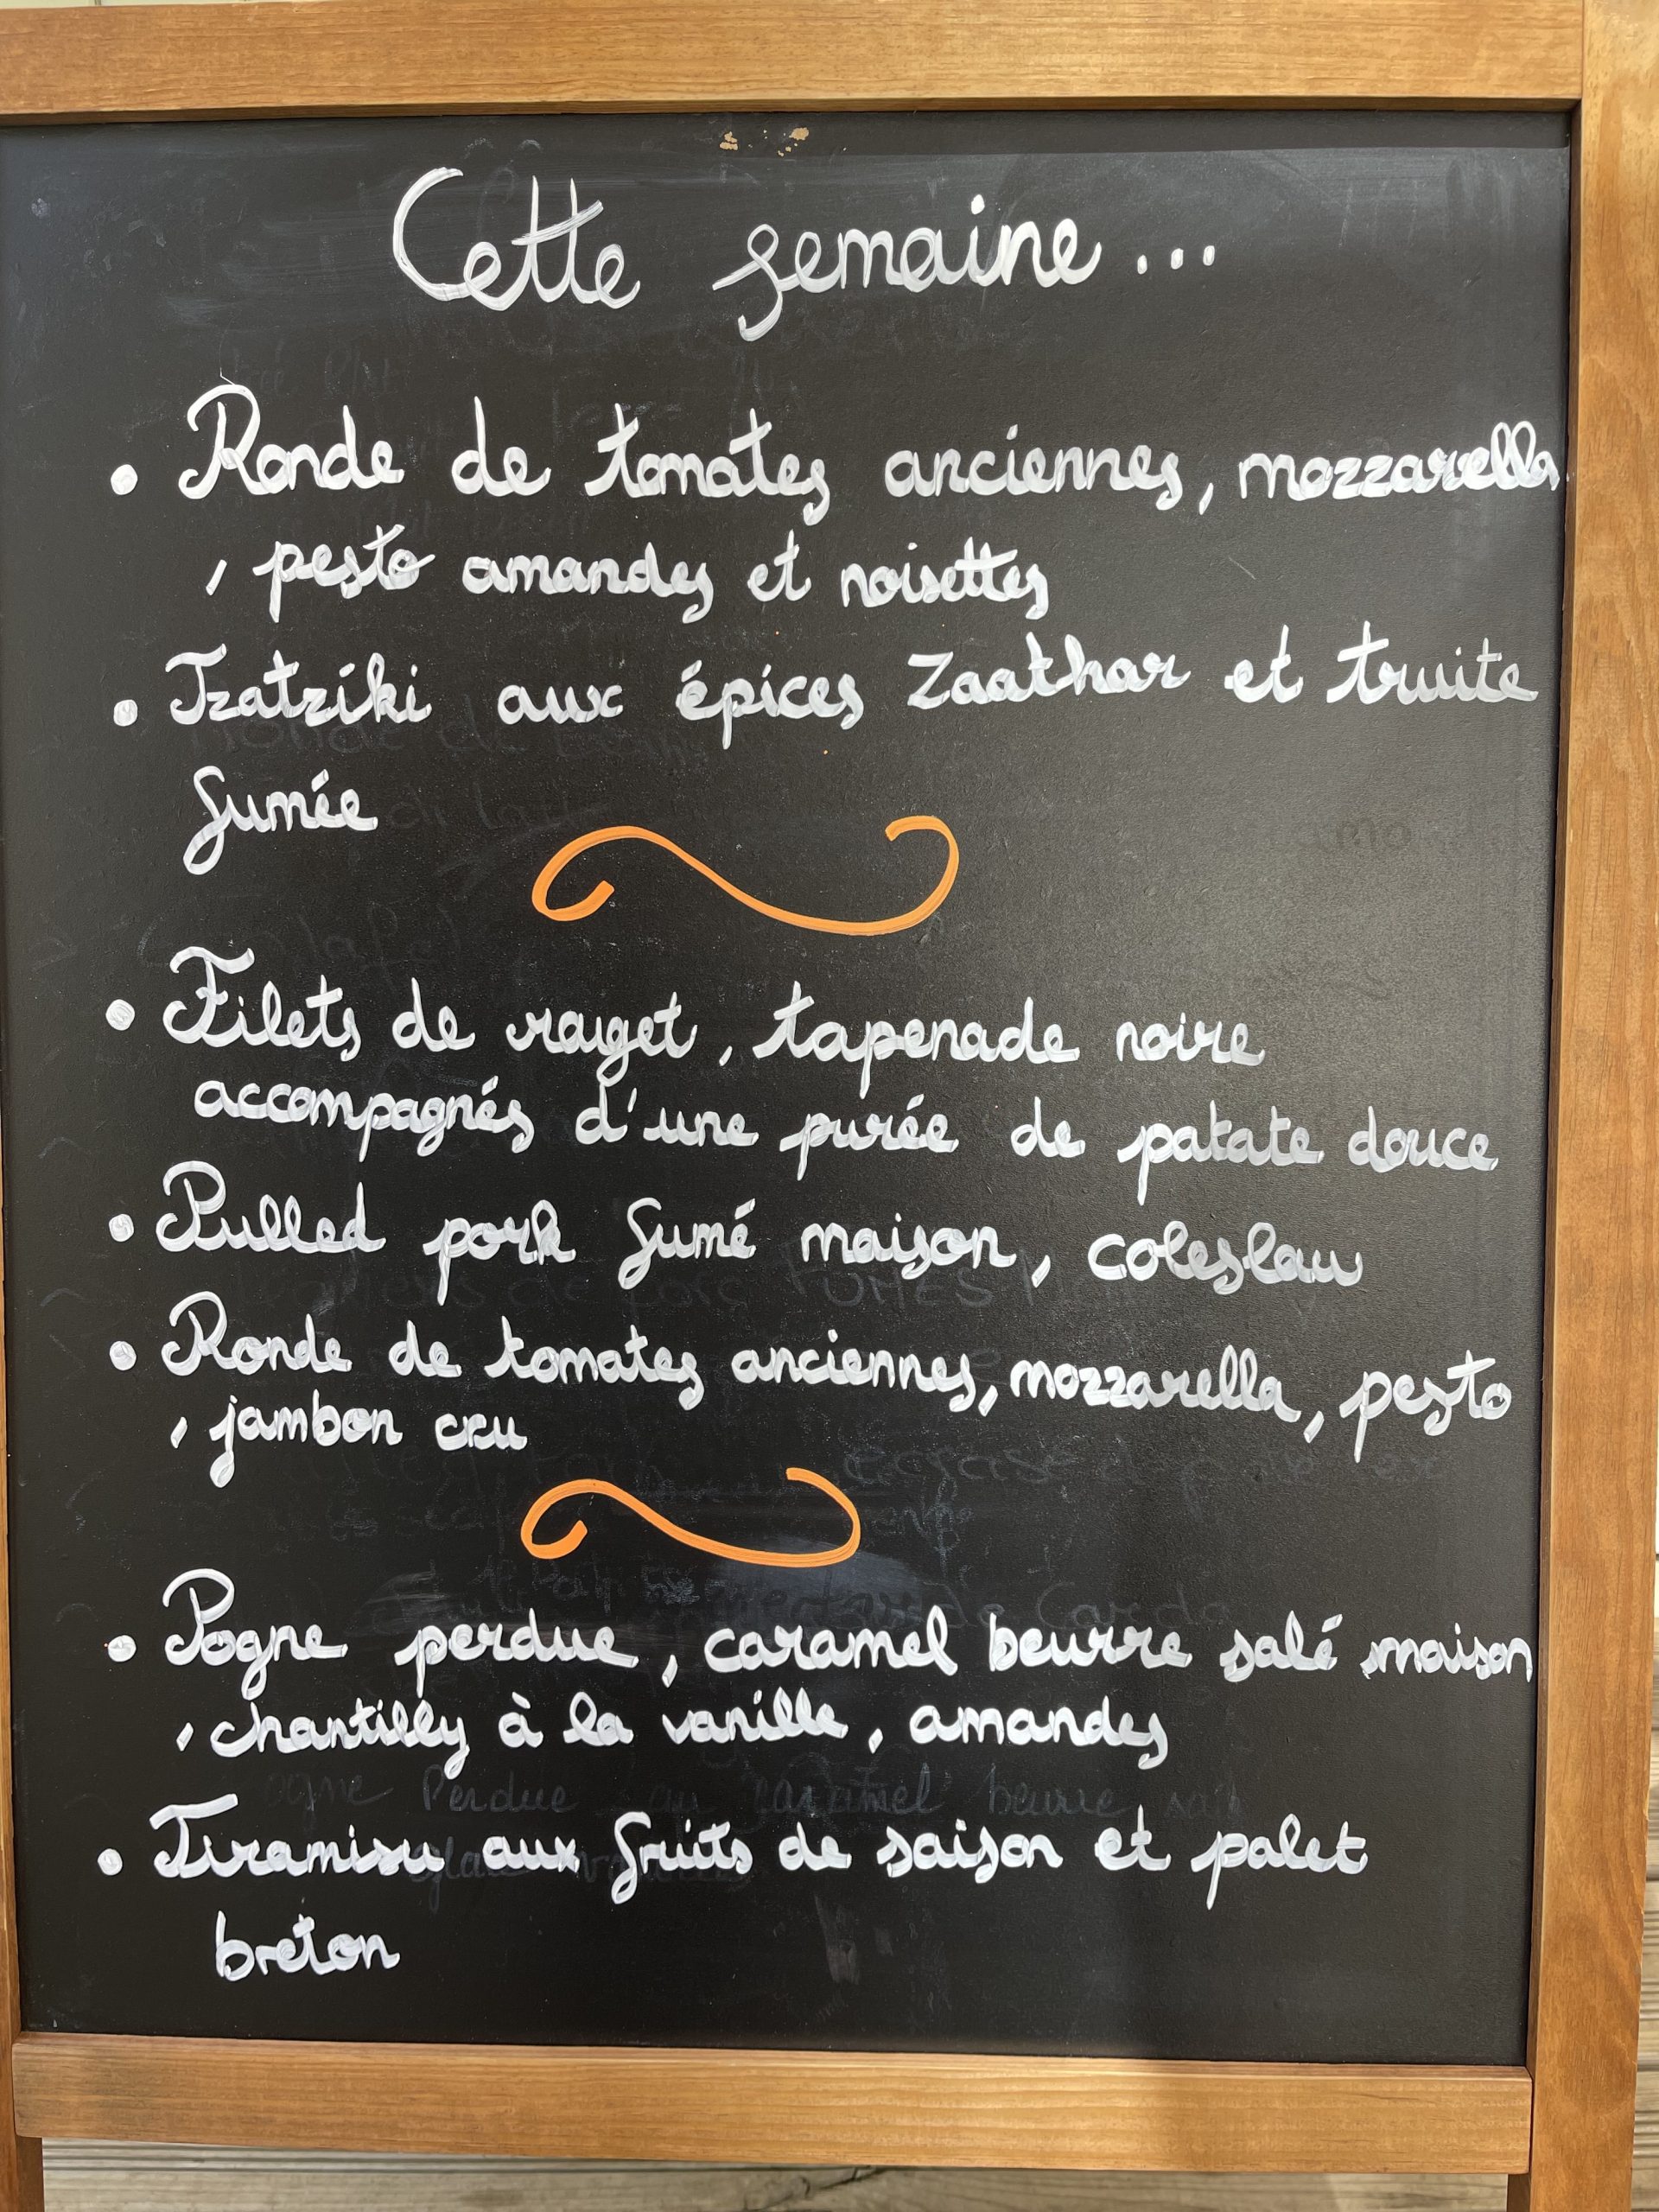 Cette semaine...
• Ronde de tomates anciennes, mozzarella
, pesto amandes et noisettes
• Tzatziki aux épices Zaathar et truite
fumée
• Filets de rouget, tapenade noire
accompagnés d'une purée de patate douce
• Pulled pork fumé maison, coleslaw
• Ronde de tomates anciennes, mozzarella, pesto
, jambon cru
• Pogne perdue, caramel beurre salé maison
, chantilly à la vanille, amandes
• Tiramisu aux fruits de saison et palet
breton